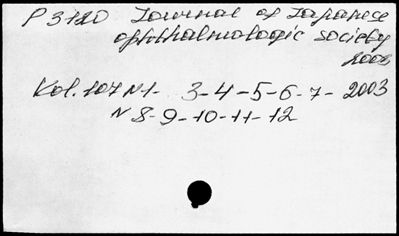 P 3120 Journal of Japanese
ophthalmologic society
Vol. 107 N 1- 3-4-5-6-7- 2003
N 8-9-10-11-12